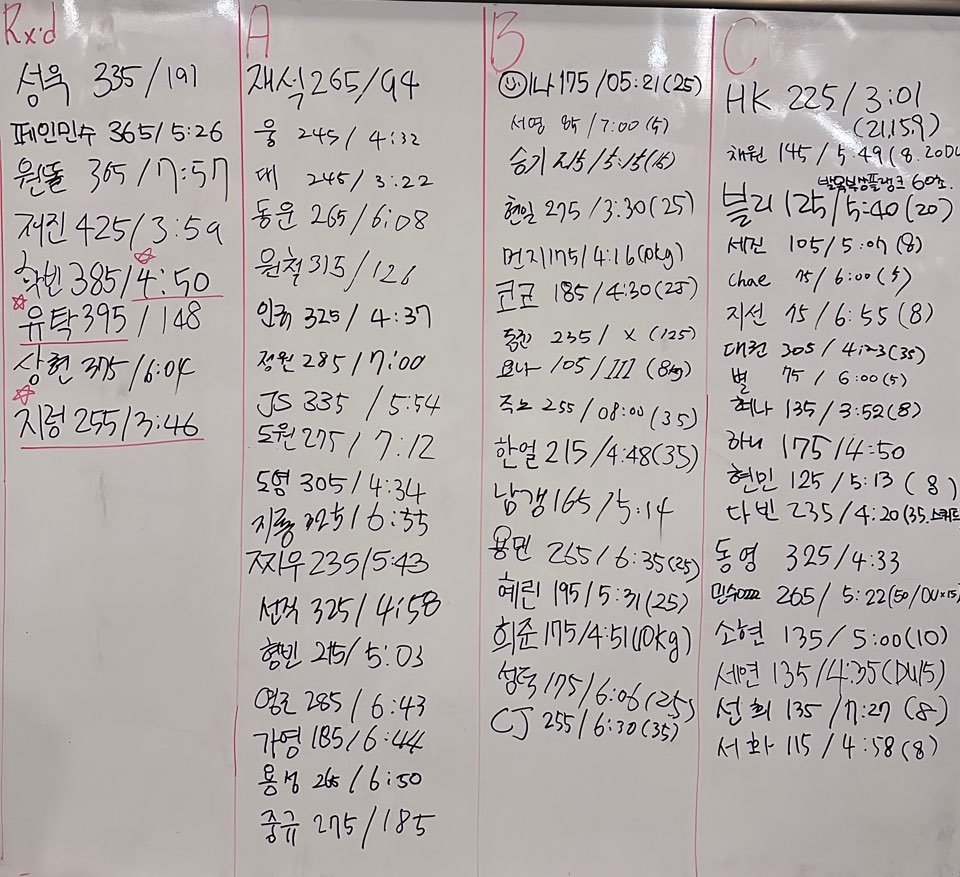 Rx'd
성욱 335/191
페인민수 365/5:26
원똘 365/7:57
재진 425/3:59
학빈 385/4:50
유탁 395/148
상현 375/6:04
지렁 255/3:46
A
재식 265/94
웅 245/4:32
대 245/3:22
동운 265/6:08
원척 315/126
325/4:37
정원 285/7:00
JS 335/5:54
도원 275/7:12
도영 305/4:34
지룡 325/6:35
쯔지우 235/5:43
선적 325/4:58
형빈 215/5:03
영근 285/6:43
가영 185/6:44
용성 265/6:50
중규 275/185
B
이나 175/05:21(25)
서영 85/7:00(5)
승기 215/5:15(15)
현일 275/3:30(25)
먼지 175/4:16(10kg)
코코 185/4:30(25)
235/X(125)
요나 105/111(8kg)
255/08:00(35)
한얼 215/4:48(35)
남갱 165/5:14
용민 265/6:35(25)
혜린 195/5:31(25)
희준 175/4:51(10kg)
성덕 175/6:06(25)
CJ 255/6:30(35)
C
HK 225/3:01
(21.15.9)
채원 145/5:49(8.20DU
60초.
블리 125/5:40(20)
세진 105/5:07(8)
chae 75/6:00(5)
지선 75/6:55(8)
대권 305/4:23(35)
별 75/6:00(5)
희나 135/3:52(8)
하니 175/4:50
현민 125/5:13(8)
다빈 235/4:20(35.스쿼트
동영 325/4:33
민수 265/5:22(50/DU×15)
소현 135/5:00(10)
세연 135/4:35(DU15)
선희 135/7:27(8)
서화 115/4:58(8)